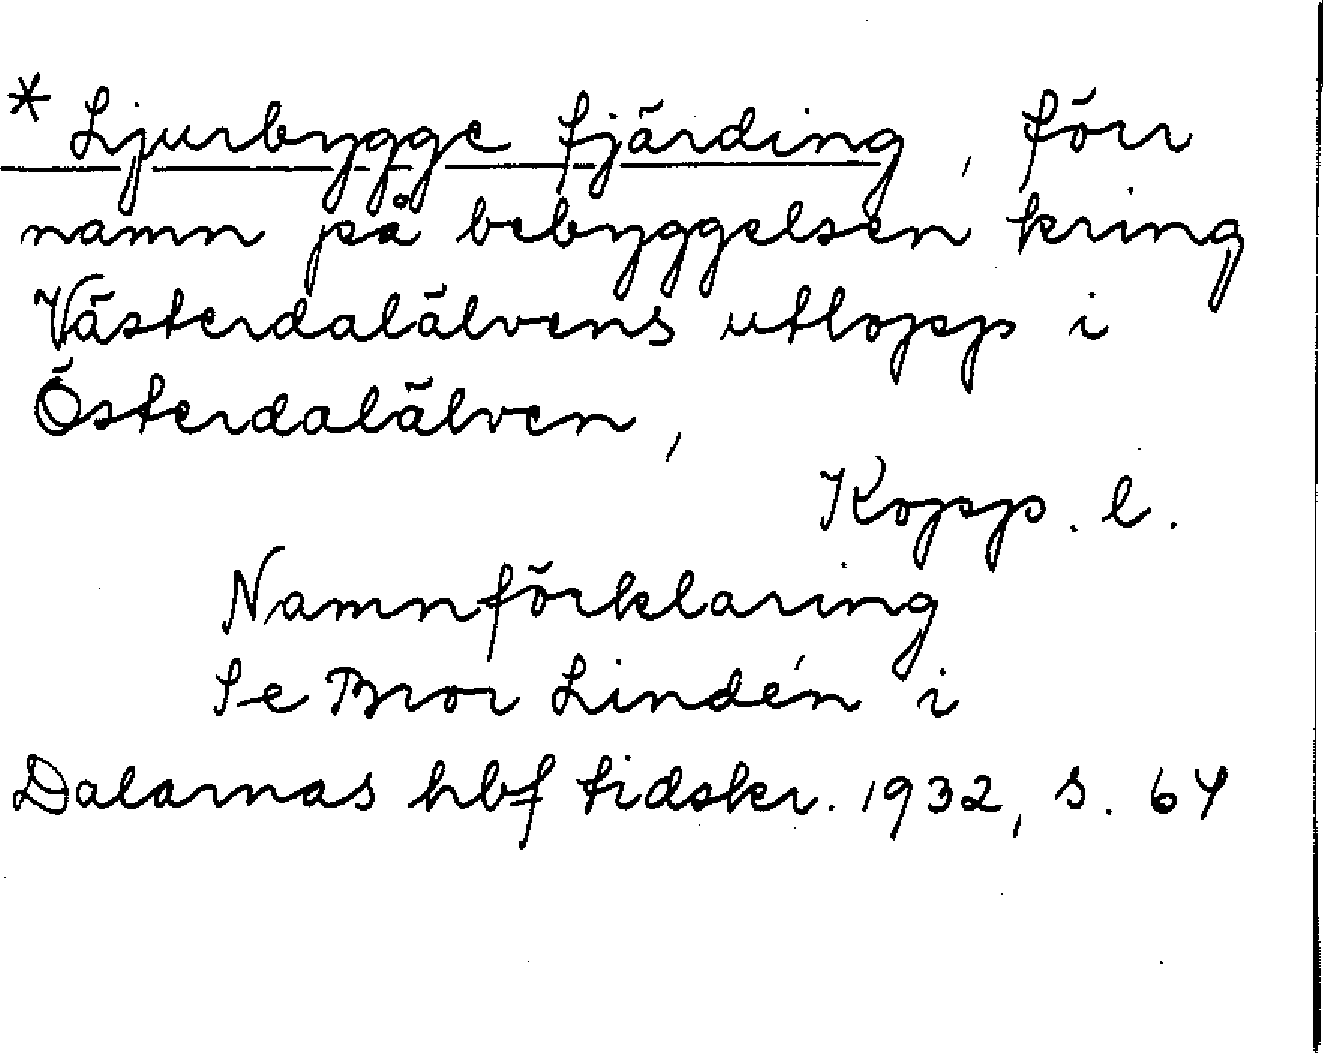 * Ljurbygge fjärding, förr
namn på bebyggelsen kring
Västerdalälvens utlopp i
Österdalälven,
Kopp. l.
Namnförklaring
Se Bror Lindén i
Dalarnas hbf tidskr. 1932, s. 64